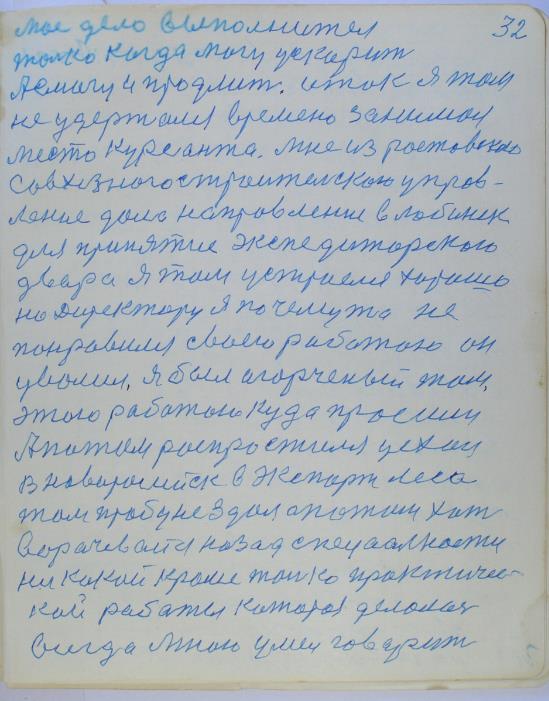 32
мое дело выполнител
толко когда могу ускорит
А смогу и продлит. иток я там
не удержался времено занимая
место курсанта. мне из ростовского
Совхезного строителскою упров-
ление дало направление в лабинск
для принятие Экспедиторского
двара я там устроелся харашо
но директору я почемута не
понравился своею работою он
уволил. я был агорченый там.
этою работою куда
А потом роспростился уехал
в новоросийск в Экспорт леса
там пробу не здал опотом хот
ворачевайся назад специалности
ни какой кроме толко практичес-
кой работы которая
всегда мною умел говарит